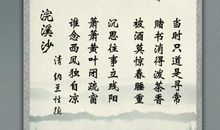 浣溪沙
清 纳兰性德
谁念西风独自凉
萧萧黄叶闭疏窗
沉思往事立残阳
被酒莫惊春睡重
赌书消得泼茶香
当时只道是寻常